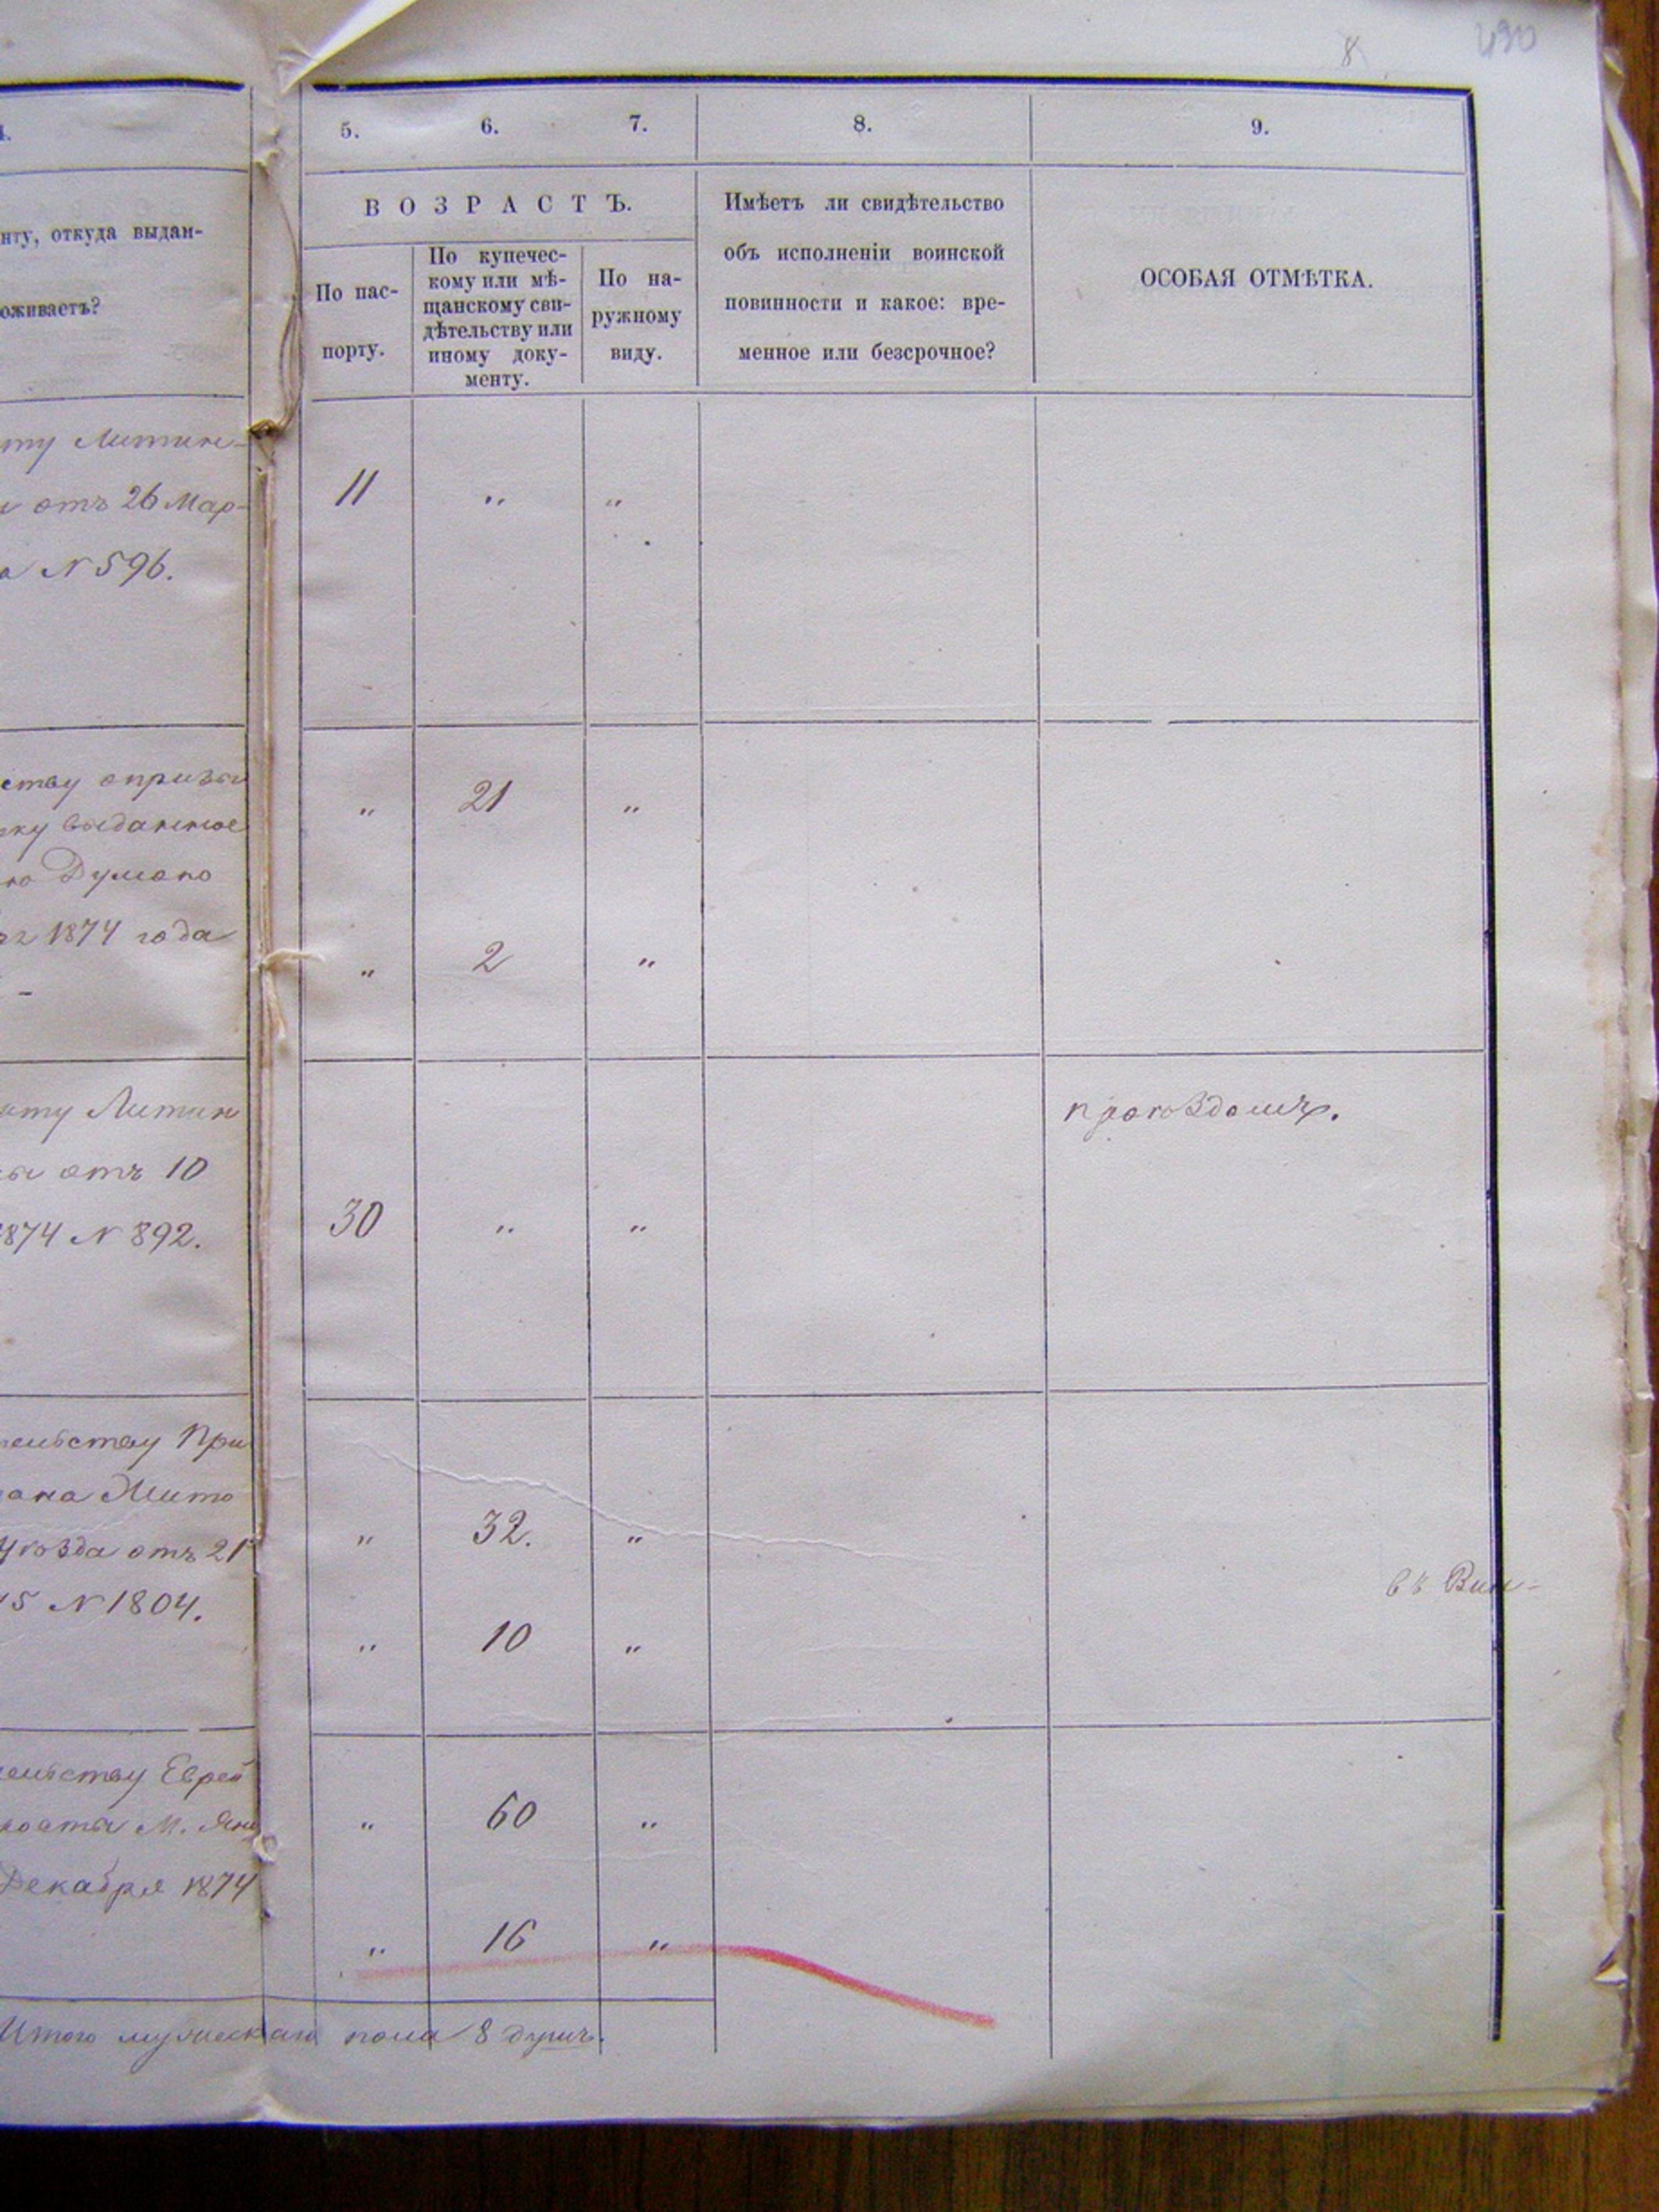 8
490
4.
5. 6. 7. 8. 9.
нту, откуда выдан-
оживаетъ?
ВОЗРАСТЪ.
По пас-
порту.
По купечес-
кому или мѣ-
щанскому сви-
дѣтельству или
иному доку-
менту.
По на-
ружному
виду.
Имѣетъ ли свидѣтельство
объ исполненіи воинской
повинности и какое: вре-
менное или безсрочное?
ОСОБАЯ ОТМѢТКА.
ту Литин-
отъ 26 Мар-
а N 596.
11 " "
ству о призы
ку выданное
ю Думою
1874 года
" 21 "
" 2 "
ту Литин
ы отъ 10
1874 N 892.
30 " "
проѣздомъ.
тельству При
Лити
уѣзда отъ 21
75 N 1804.
" 32. "
" 10 "
въ Вин-
тельству Еврей
роста М. Яно
Декабря 1874
" 60 "
" 16 "
Итого мужескаго пола 8 душъ.